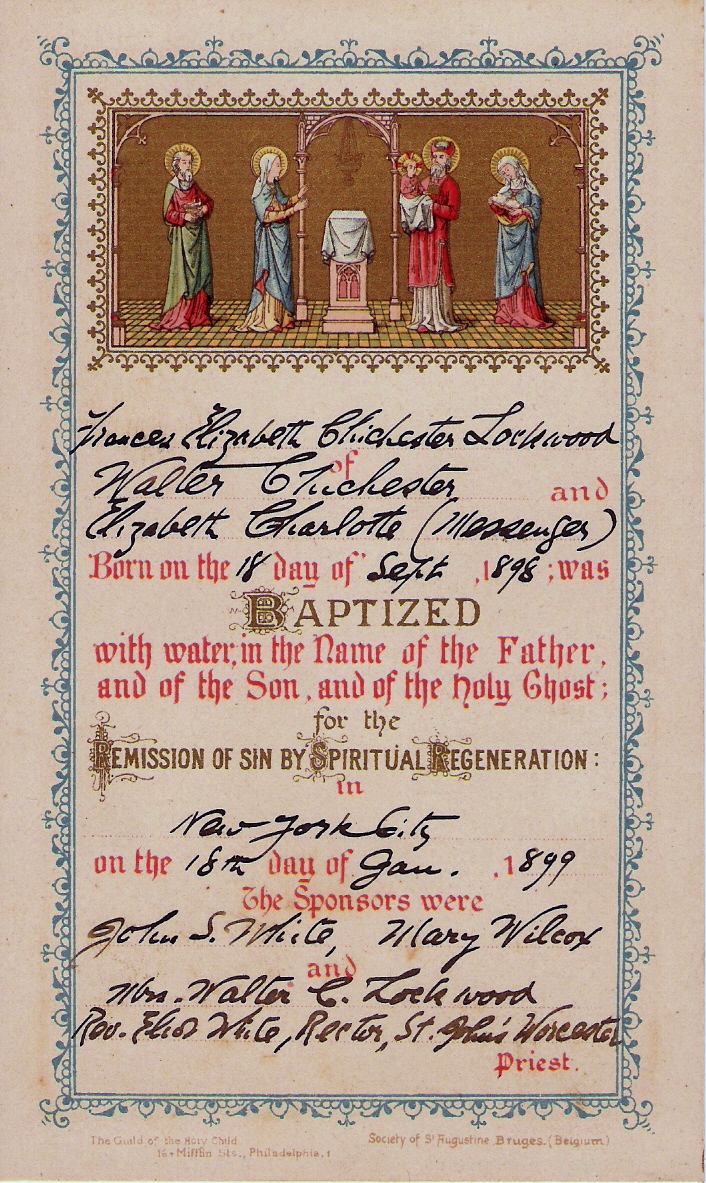 Frances Elizabeth Chichester Lockwood
of
Walter Chichester
and
Elizabeth Charlotte (Messenger)
Born on the 18 day of Sept. 1898; was
BAPTIZED
with water, in the Name of the Father,
and of the Son, and of the Holy Ghost;
for the
REMISSION OF SIN BY SPIRITUAL REGENERATION:
in
New York City
on the 18th day of Jan. 1899
The Sponsors were
John S. White, Mary Wilcox
and
Mrs. Walter C. Lockwood
Rev. Eliot White, Rector, St. John's Worcester
Priest.
The Guild of the Holy Child Society of St Augustine Bruges. (Belgium)
Mifflin Sts., Philadelphia,